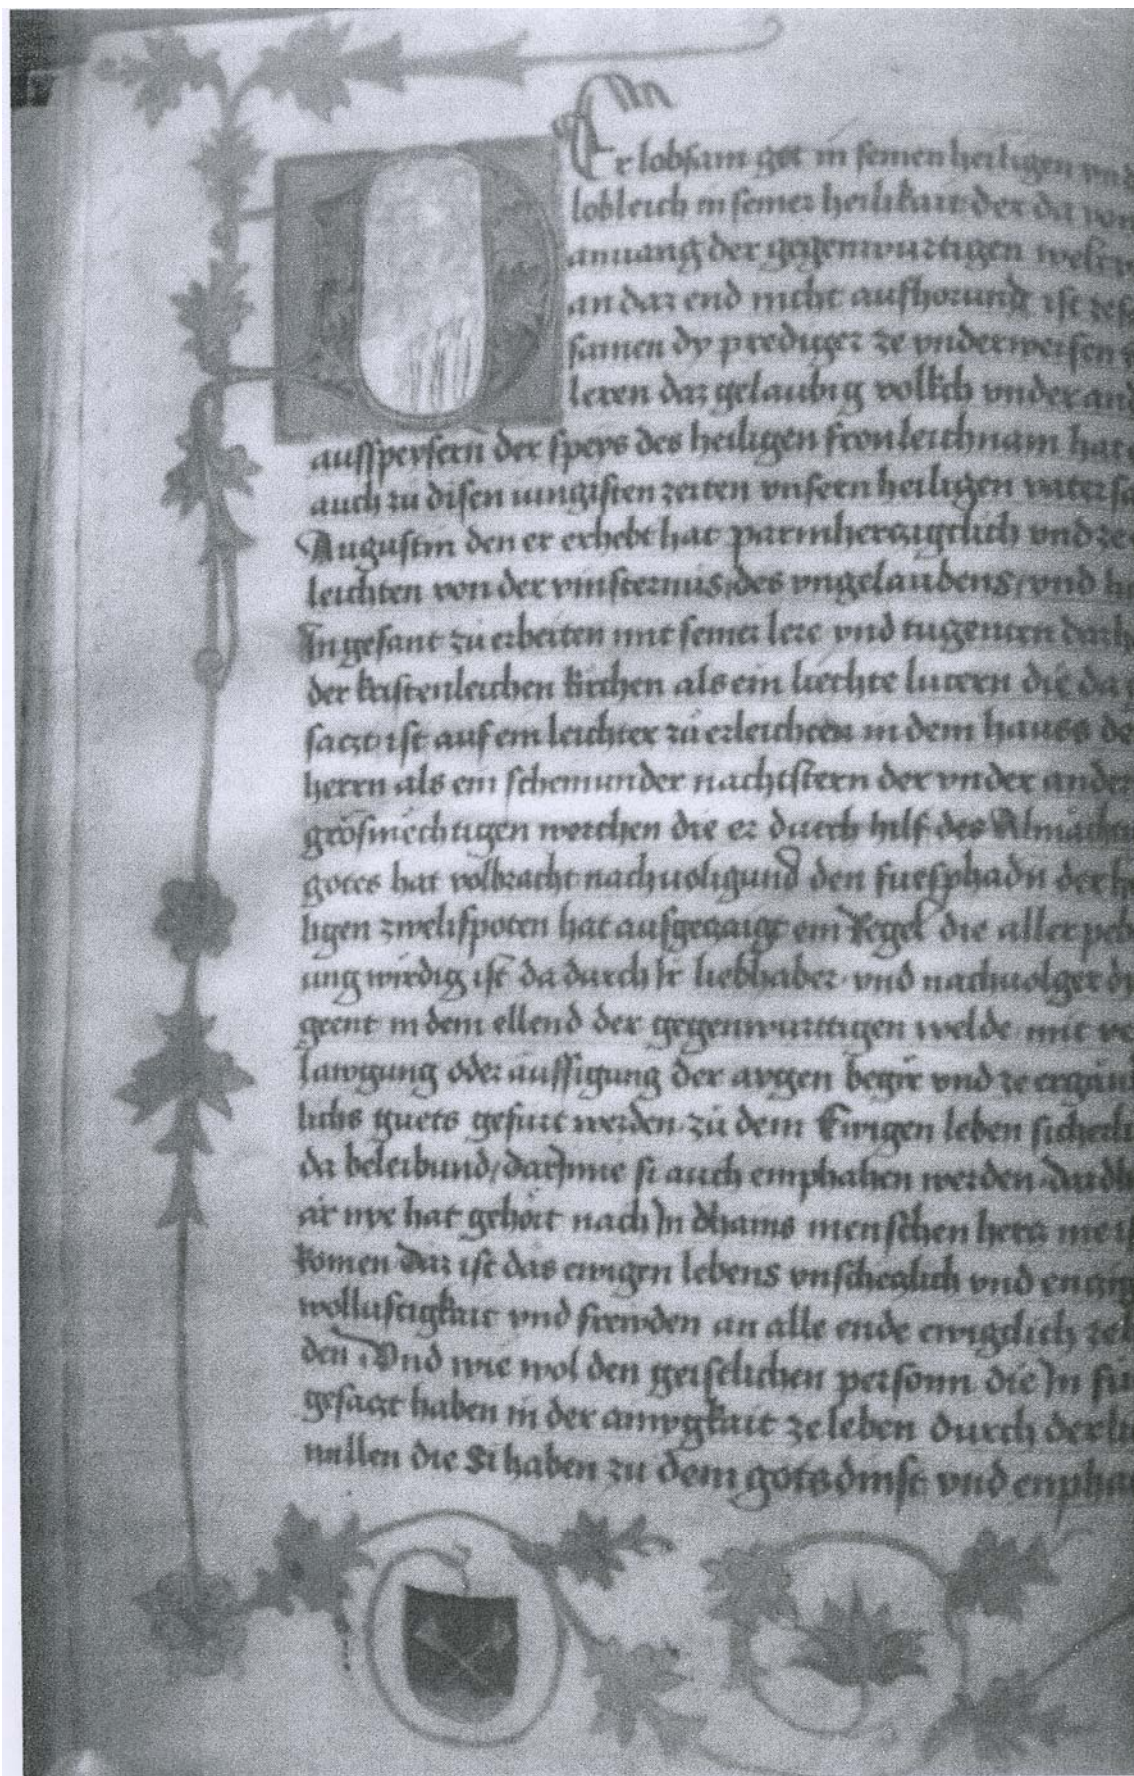 Er lobsam got in seinen heiligen vnd
lobleich in seiner heilikait der da von
anuang der gegenwurtigen welt
an daz end nicht aufhorund ist
samen dy prediger ze vnderweisen
leren daz gelaubig volkch vnder
ausspeysern der speys des heiligen fronleichnam hat
auch zu disen iungisten zeiten vnsern heiligen vater
Augustin den er erhebt hat parmherczigclich vnd ze
leuchten von der vinsternus des vngelaubens / vnd
In gesant zu erbeiten mit seiner lere vnd tugenten
der kristenleichen kirchen als ein liechte lucern die da
saczt ist auf ein leichter zu erleichten in dem hauss
herrn als ein scheinunder nachtstern der vnder
grösmechtigen werchen die er durch hilf des
gotes hat volbracht nachuolgund den fuesphadn der
ligen zwelifpoten hat aufgeczaigt ein Regel die aller
ung wirdig ist da durch Ir liebhaber vnd nachuolger
geent in dem ellend der gegenwurttigen welde mit
oder aussigung der avgen begir vnd ze
lichs guets gefurt werden zu dem Ewigen leben
da beleibund / darInne si auch emphahen werden
är nye hat gehört nach In chains menschen hercz nie
komen Daz ist das ewigen lebens vnscheczlich vnd
wollustigkait vnd frewden an alle ende ewigclich
den Vnd wie wol den geistlichen personn die In
gesaczt haben in der ainygkait ze leben durch der
willen die Si haben zu dem gotsdinst vnd